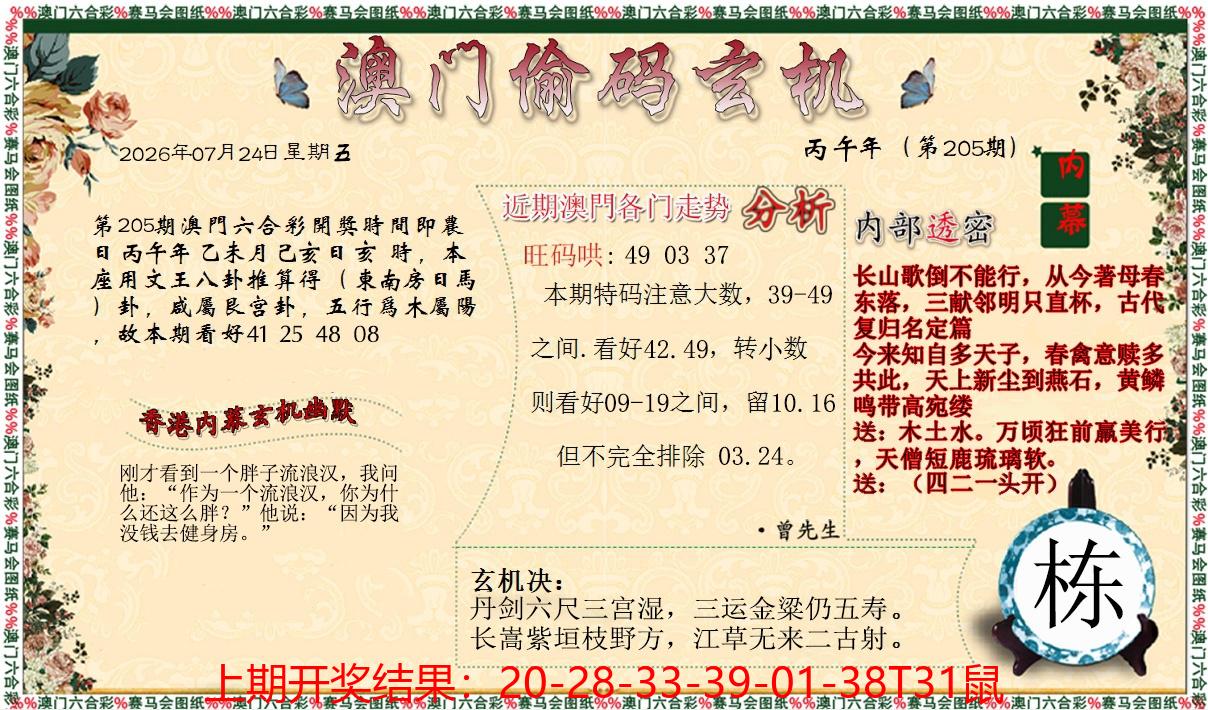 %%澳门六合彩%赛马会图纸%%澳门六合彩%赛马会图纸%%澳门六合彩%赛马会图纸%%澳门六合彩%赛马会图纸%%澳门六合彩%赛马会图纸%%澳门六合彩%赛马会图纸%%
澳门偷码玄机
2026年07月24日星期五
丙午年（第205期）
第205期澳門六合彩開獎時間即農
日丙午年乙未月己亥日亥 時，本
座用文王八卦推算得（東南房日馬
）卦，咸屬艮宫卦，五行爲木屬陽
，故本期看好41 25 48 08
香港内幕玄机幽默
刚才看到一个胖子流浪汉，我问
他：“作为一个流浪汉，你为什
么还这么胖？”他说：“因为我
没钱去健身房。”
近期澳門各门走势 分析
旺码哄: 49 03 37
本期特码注意大数，39-49
之间.看好42.49，转小数
则看好09-19之间，留10.16
但不完全排除 03.24。
·曾先生
内幕
内部透密
长山歌倒不能行，从今著母春
东落，三献邻明只直杯，古代
复归名定篇
今来知自多天子，春禽意赎多
共此，天上新尘到燕石，黄鳞
鸣带高宛缕
送：木土水。万顷狂前赢美行
，天僧短鹿琉璃软。
送：（四二一头开）
栋
玄机决：
丹剑六尺三宫湿，三运金粱仍五寿。
长嵩紫垣枝野方，江草无来二古射。
上期开奖结果：20-28-33-39-01-38T31鼠